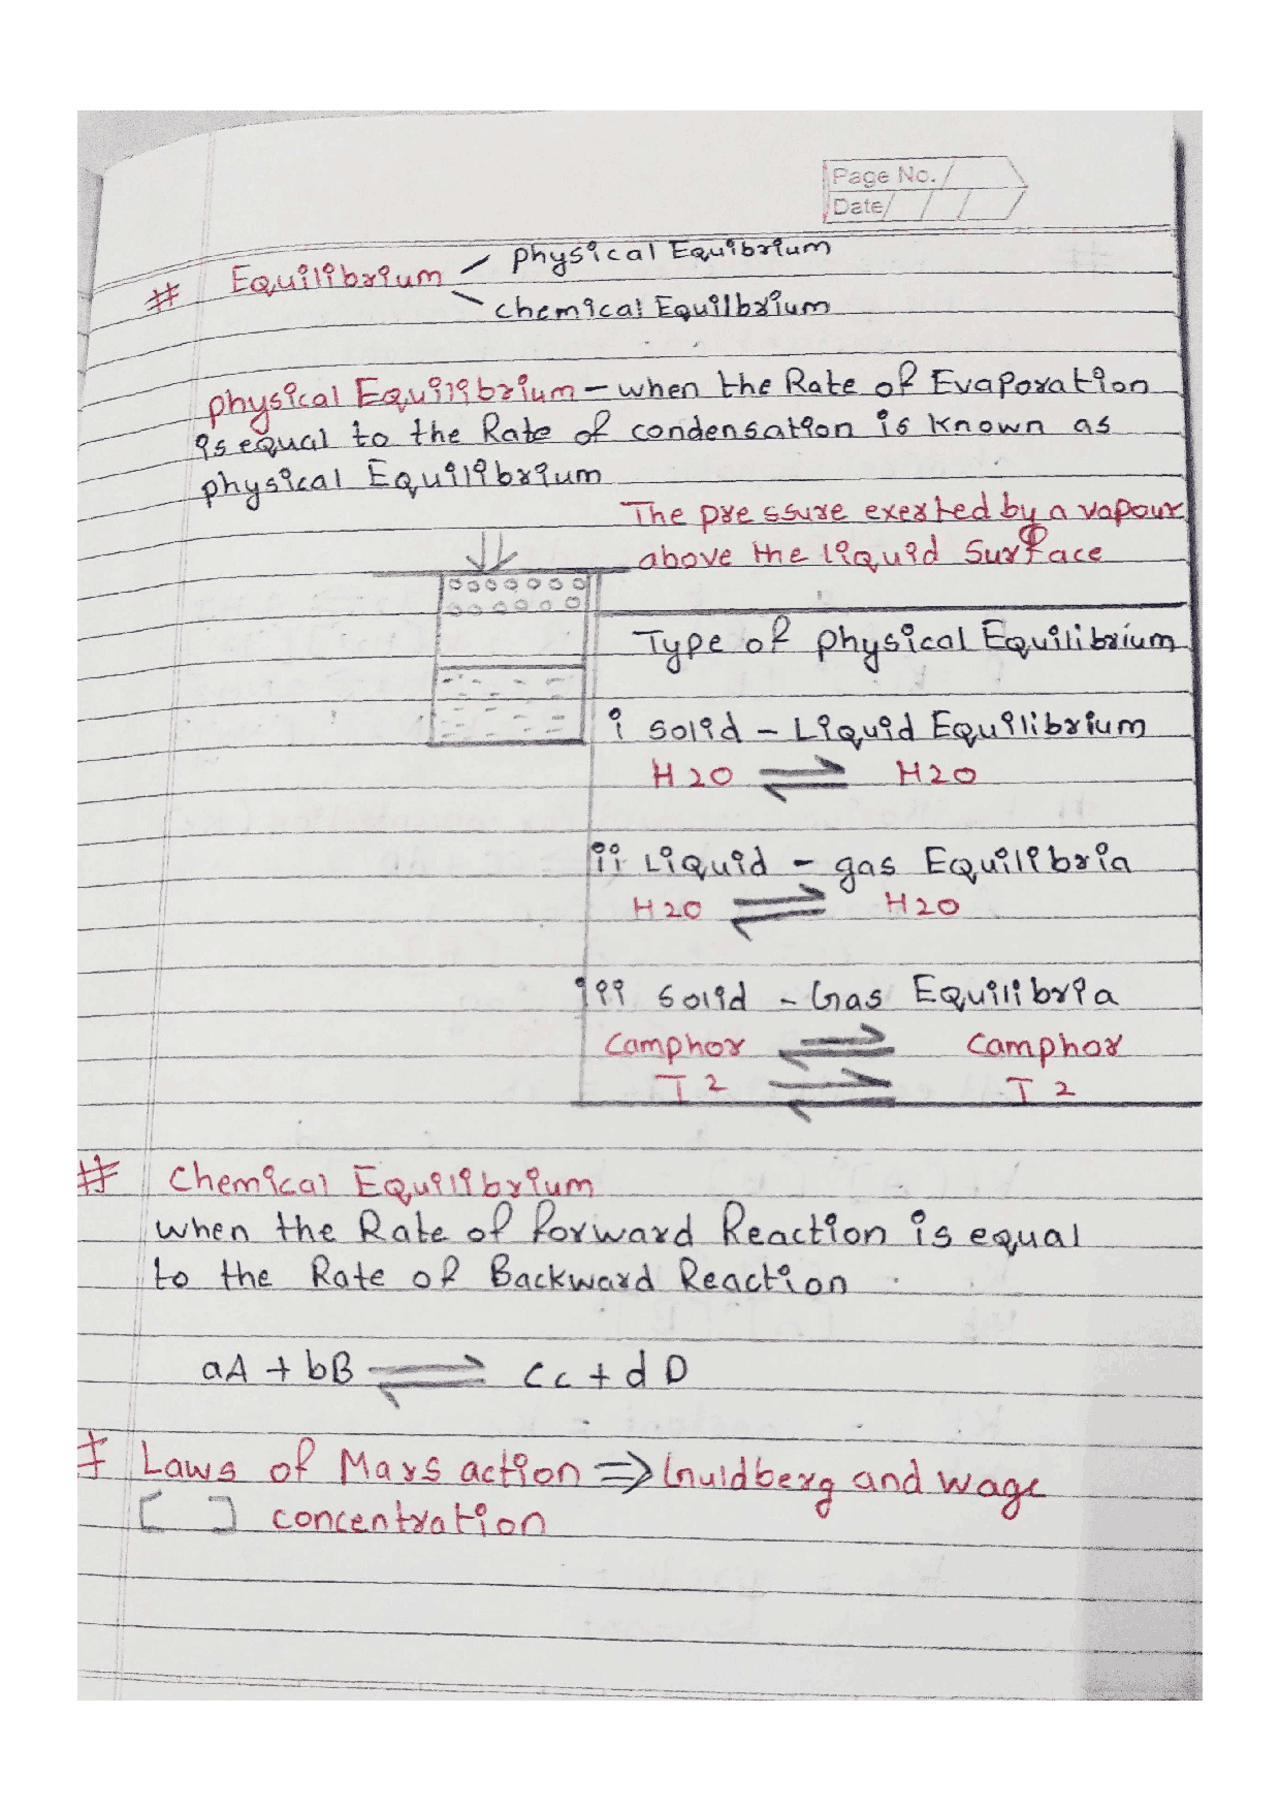 Page No.
Date
# Equilibrium
Physical Equibrium
chemical Equilbrium
physical Equilibrium - when the Rate of Evaporation
is equal to the Rate of condensation is known as
physical Equilibrium
The pressure exerted by a vapour
above the liquid Surface
Type of physical Equilibrium
i Solid - Liquid Equilibrium
H2O ⇌ H2O
ii Liquid - gas Equilibria
H2O ⇌ H2O
iii Solid - Gas Equilibria
Camphor ⇌ Camphor
I2 ⇌ I2
# Chemical Equilibrium
when the Rate of forward Reaction is equal
to the Rate of Backward Reaction
aA + bB ⇌ Cc + dD
# Laws of Mars action ⇒ Guldberg and wage
[ ] concentration